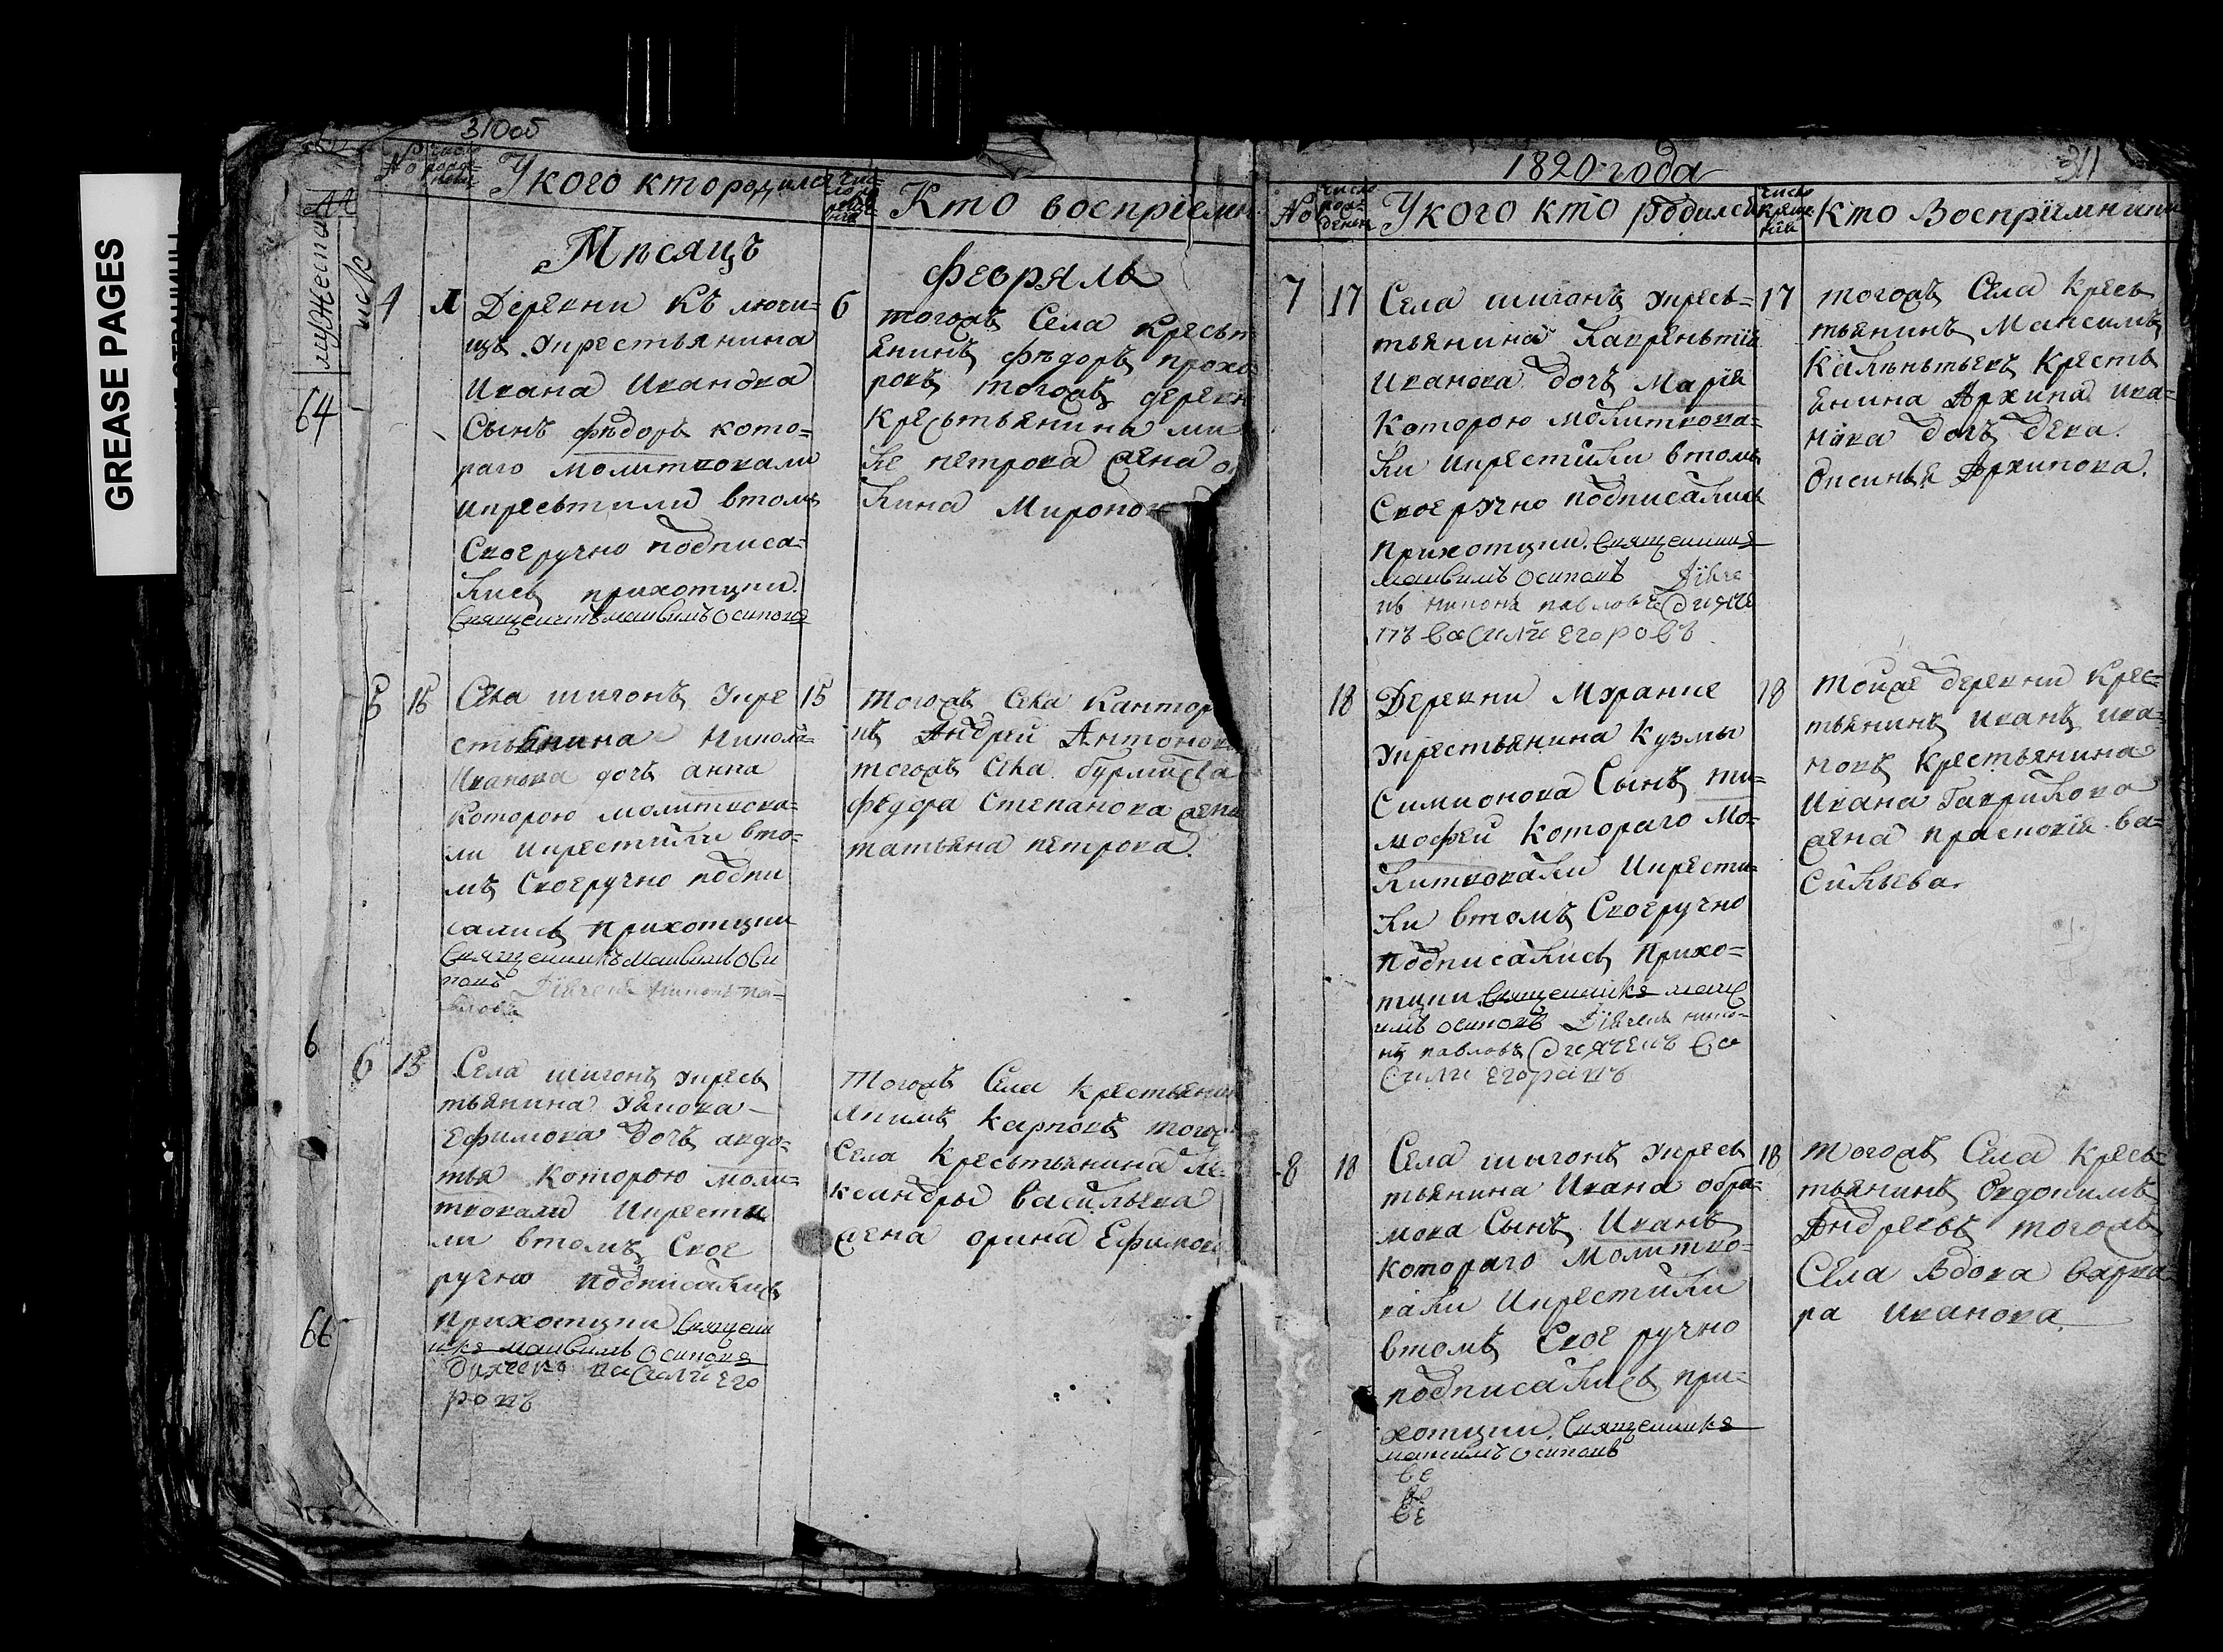 GREASE PAGES
310об
No
У кого кто родился
Кто воспріемн
Мѣсяцъ
Февраль
мужеска
64
4
Деревни Къ лючи=
щъ укрестьянина
Ивана Иванова
Сынъ Фѣдоръ кото=
раго молитвовали
икресьтили втомъ
Своеручно подписа=
лись прихотцки.
Священникъ Максимъ Осиповъ
6
тогожъ Села Кресьт
янинъ Фѣдоръ Прохо
ровъ тогожъ деревн
Кресьтьянина
петрова жена
Миронов
5 15
Села шигонъ укре
стьянина Никола=
Иванова дочь анна
Которою молитвова=
ли икрестили вто=
мъ Своеручно подпи
сались прихотцки
Священникъ Максимъ Оси
повъ Дїячекъ никонъ па=
вловъ
15
тогожъ Села Кантор
Андрей Антоновъ
тогожъ Села бурмистра
Фѣдора Степанова жена
татьяна петрова.
6
6 15
Села шигонъ укресь
тьянина
Ефимова дочь авдо=
тья Которою моли=
твовали икрести
ли втомъ Свое
ручно подписались
прихотцки Священ
никъ максимъ Осиповъ
дьячекъ василий его
ровъ
тогожъ Села крестьянин
Акимъ Карповъ тогож
Села Кресьтьянина Ле=
ксандры Васильева
жена орина Ефимова
66
1820 года
311
No
число рождения
У кого кто родился
число крещения
Кто Воспріимники
7 17
Села шигонъ укресь=
тьянина Лаврентия
Иванова дочь Марія
Которою молитвова=
ли икрестили втомъ
Своеручно подписались
прихотцки. Священникъ
максимъ осиповъ Дїяче
къ никонъ павловъ дияче
къ василй егоровъ
17
тогожъ Села Кресь
тьянинъ Максимъ
Кресть
янина Архипа ива=
нова дочь дева.
Оксинья Архипова.
18
Деревни Мурание
укрестьянина Кузмы
Симионова Сынъ ти=
мофеи Котораго Мо=
литвовали икрести=
ли втомъ Своеручно
подписались прихо=
тцки Священникъ макс
имъ осиповъ Дїячекъ нико=
нъ павловъ дьячекъ ва
силй егоравъ
18
тойже деревни Крес=
тьянинъ Иванъ ива=
новъ Крестьянина
Ивана Гаврилова
жена прасковія ва=
сильева.
8 18
Села шигонъ укресь
тьянина Ивана обра=
мова Сынъ Иванъ
Котораго Молитво=
вали икрестили
втомъ Свое ручно
подписались при=
хотцки. Священникъ
максимъ осиповъ
18
тогожъ Села Кресь=
тьянинъ Овдокимъ
Андреевъ тогожъ
Села вдова варва
ра Иванова